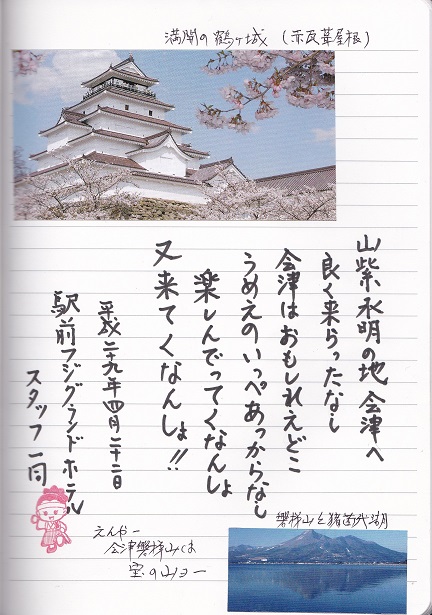 満開の鶴ヶ城（赤瓦葺屋根）
山紫水明の地 会津へ
良く来らったなし
会津はおもしれえどこ
うめえのいっぺあっからなし
楽しんでってくなんしょ
又来てくなんしょ!!
平成二十九年四月二十二日
駅前フジグランドホテル
スタッフ一同
磐梯山と猪苗代湖
えんやー
会津磐梯山は
宝の山ヨー